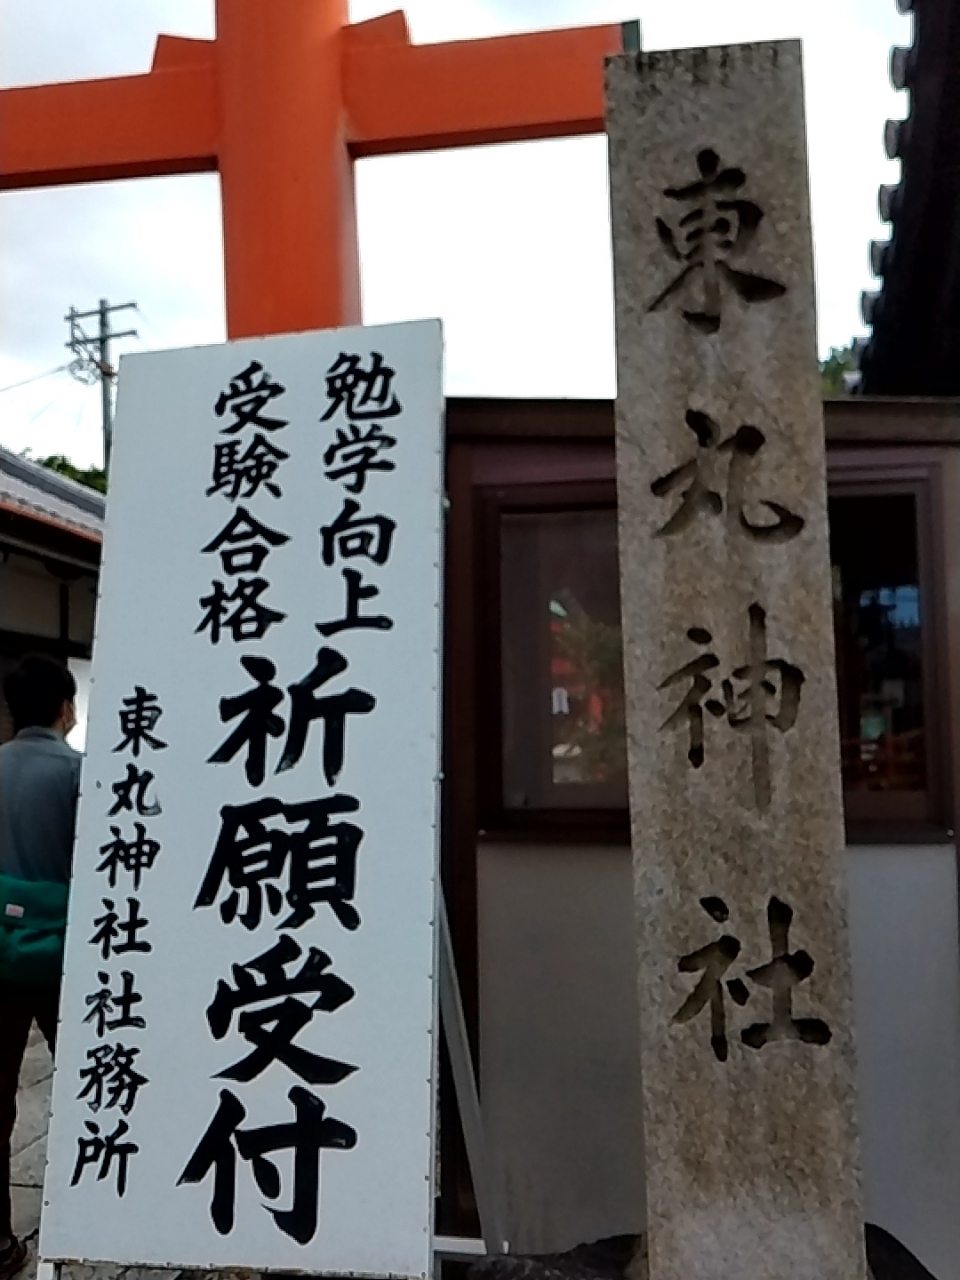 東丸神社
勉学向上
受験合格
祈願受付
東丸神社社務所